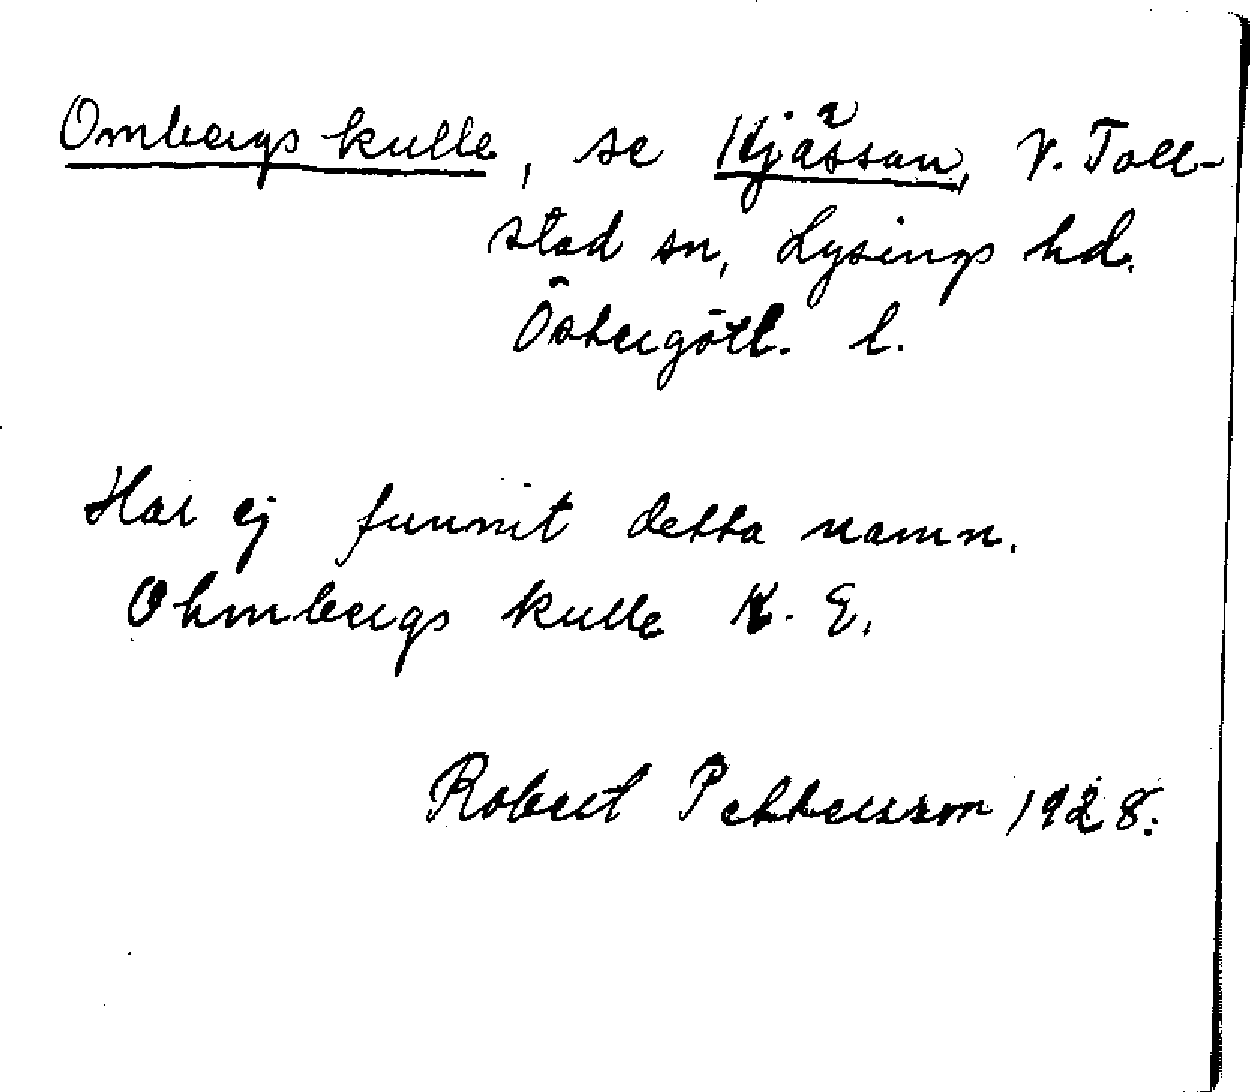 Ombergs kulle, se Hjässan, V. Toll-
stad sn, Lysings hd.
Östergötl. l.
Har ej funnit detta namn.
Ohmbergs kulle K. E.
Robert Pettersson 1928.